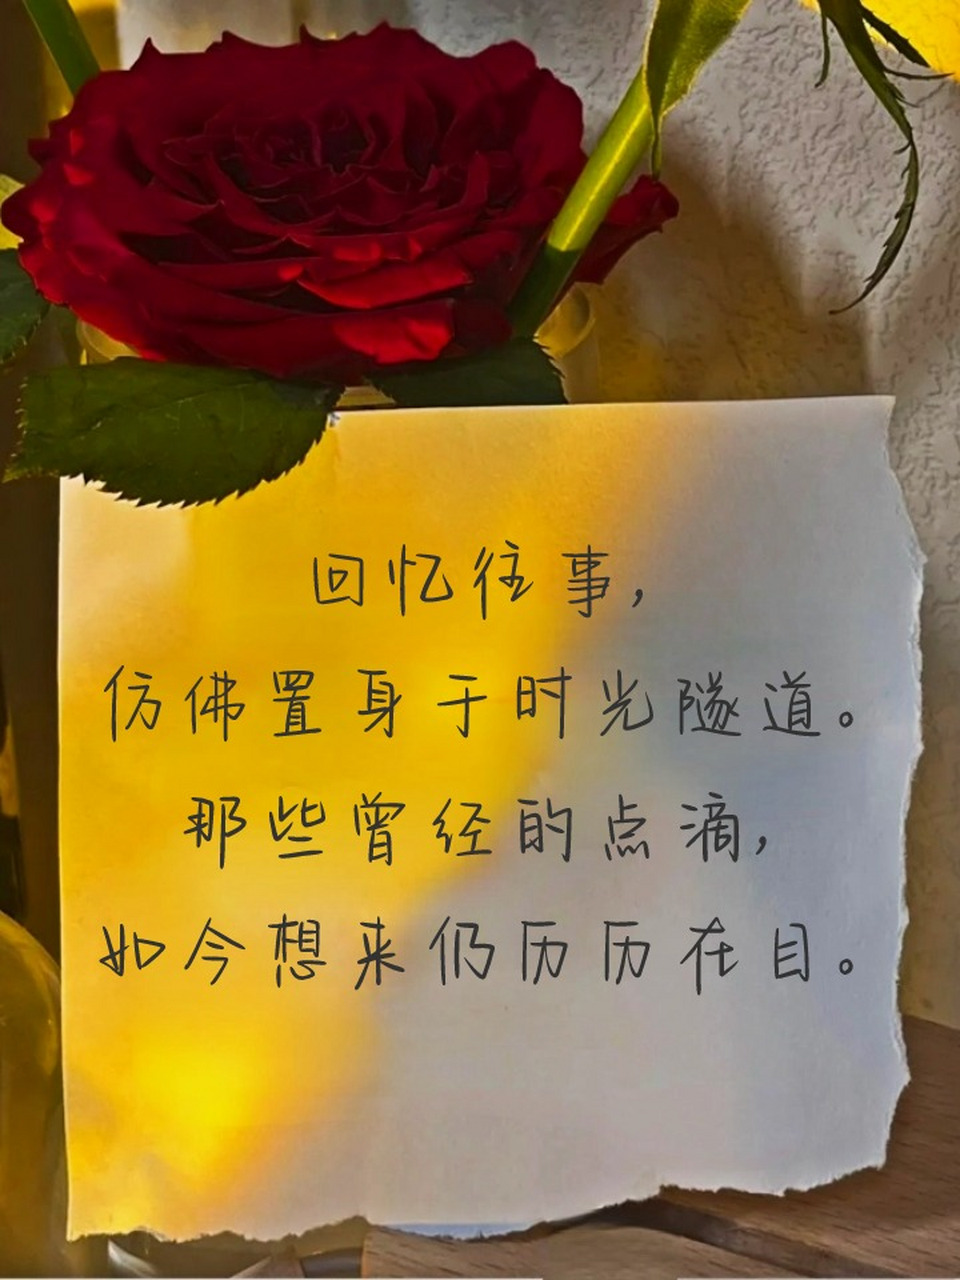 回忆往事,
仿佛置身于时光隧道。
那些曾经的点滴,
如今想来仍历历在目。